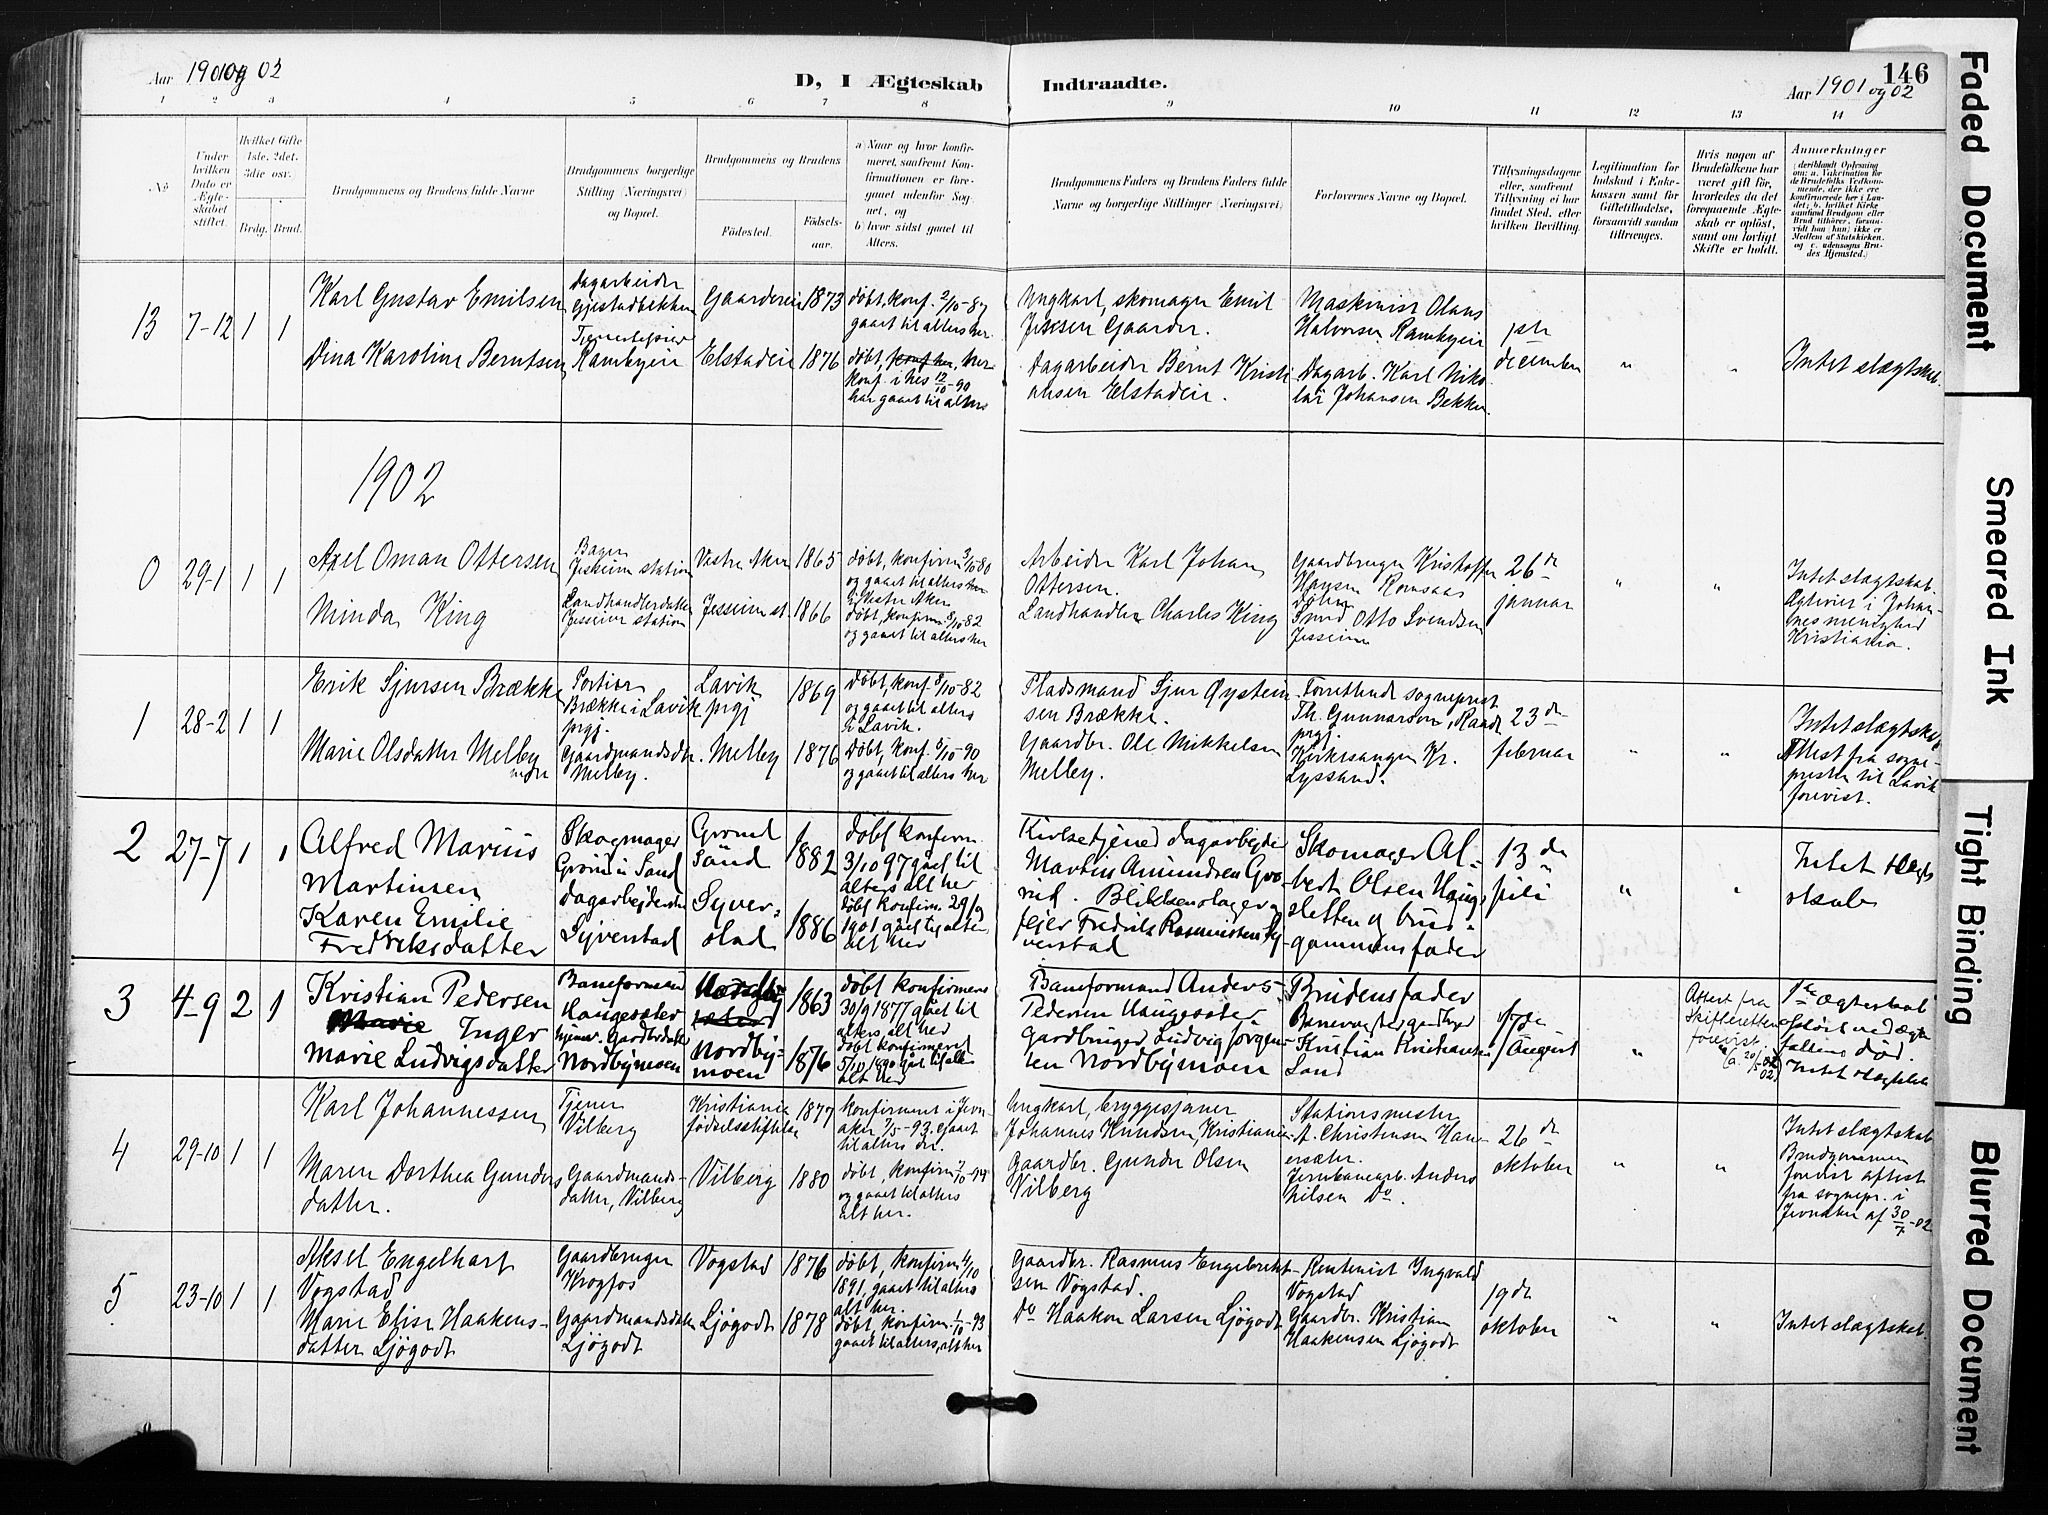 Aar 1901 og 02
D, I Ægteskab
Indtraadte.
Aar 1901 og 02
146
1 2 3 4 5 6 7 8 9 10 11 12 13 14
No
Under hvilken Dato er Ægteskabet stiftet.
Hvilket Gifte 1ste, 2det, 3die osv.
Brdg. Brud.
Brudgommens og Brudens fulde Navne
Brudgommens borgerlige Stilling (Næringsvei) og Bopæl.
Brudgommens og Brudens
Fødested.
Fødsels-aar.
a) Naar og hvor konfirmeret, saafremt Konfirmationen er foregaaet udenfor Sognet, og
b) hvor sidst gaaet til Alters.
Brudgommens Faders og Brudens Faders fulde Navne og borgerlige Stillinger (Næringsvei)
Forlovernes Navne og Bopæl.
Tillysningsdagene eller, saafremt Tillysning ei har fundet Sted, efter hvilken Bevilling.
Legitimation for Indskud i Enkekassen samt for Giftetilladelse, forsaavidt saadan tiltrænges.
Hvis nogen af Brudefolkene har været gift før, hvorledes da det foregaaende Ægteskab er opløst, samt om lovligt Skifte er holdt.
Anmærkninger
13 7-12 1 1
Karl Gustav Emilsen
Dina Karoline Berntsen
Dagarbeider
Gjestadbekken
Rambyeie
Gaardereie 1873
Elstadeie 1876
døbt, konf. 2/10-87
gaaet til alters her
døbt, konf her, her
konf. i Nes 12/10-90
har gaaet til alters
Ungkarl, skomager Emil
Jessen Gaarder.
Dagarbeider Bernt Kristi
ansen Elstadeie.
Maskinist Olaus
Halvorsen Rambyeie
Dagarb. Karl Niko
lai Johansen Bekken
1ste
december
" "
Intet slægtskab.
1902
0 29-1 1 1
Axel Oman Ottersen
Minda King
Bager
Jesseim station
Landhandlerdatter
Jesseim station
Vestre Aker 1865
Jesseim st. 1866
døbt, konfirm 3/10-80
og gaaet til alters her
i Vestre Aker
døbt, konfirm 8/10-82
og gaaet til alters her
Arbeider Karl Johan
Ottersen.
Landhandler Charles King
Gaardbruger Kristoffer
Hansen Romsaas
Smed Otto Svendsen
Jesseim
26de
januar
" "
Intet slægtskab.
i Johan-
nes menighed
Kristiania.
1 28-2 1 1
Erik Sjursen Brække
Marie Olsdatter Melby
nedre
Portier
Brække i Lavik
prgj.
Gaardmandsdtr.
Melby.
Lavik 1869
prgj
Melby 1876
døbt, konf. 8/10-82
og gaaet til alters
i Lavik.
døbt, konf. 5/10-90
og gaaet til alters her
Pladsmand Sjur Øystein
sen Brække.
Gaardbr. Ole Mikkelsen
Melby.
Forrettende sogneprest
Th. Gunnarson, Raade
prgj.
Kirkesanger Kr.
Lyssand.
23de
februar
" "
Intet slægtskab
Attest fra sogne-
presten til Lavik
forevist.
2 27-7 1 1
Alfred Marius
Martinsen
Karen Emilie
Fredriksdatter
Skogmager
Grønd i Sand
Dagarbejderdtr
Syverstad
Grønd
Sand
1882
Syver-
stad
1886
døbt konfirm.
3/10 97 gået til
alters alt her
døbt konfirm. 29/9
1901 gået til alters
alt her
Kirketjener dagarbejder
Martin Amundsen Grø-
nd. Blikkenslager
fejer Fredrik Rasmussen Sy-
verstad
Skomager Al-
bert Olsen Haug-
sletten og brud-
gommens fader
13de
juli
" "
Intet slægt
skab
3 4-9 2 1
Kristian Pedersen
Marie Inger
Marie Ludvigsdatter
Baneformand
Haugeseter
hjemv. Gaardbrdatter
Nordbymoen
1863
Nordby-
moen
1876
døbt konfirmeret
30/9 1877 gået til
alters, alt her
døbt konfirmeret
5/10 1890 gået til alters
alt her
Baneformand Anders
Pedersen Haugeseter
Gardbruger Ludvig Jørgen-
sen Nordbymoen
Brudens fader
Banevogter gardbruger
Kristian Kristiansen
Sand
17de
August
"
Attest fra
Skifteretten
forevist.
1ste ægteskab
opløst ved ægte
fællens død.
Intet slægtskab
4 29-10 1 1
Karl Johannessen
Maren Dorthea Gunders
datter.
Tjener
Vilberg
Gaardmands-
datter, Vilberg
Kristiania 1877
fødselsstiftelse
Vilberg 1880
konfirmeret i Jevn-
aker 7/5-93. Gaaet
til alters der.
døbt, konfirm 7/10-94
og gaaet til alters
alt her.
Ungkarl, bryggesjauer
Johannes Knudsen, Kristiania
Gaardbr. Gunder Olsen
Vilberg
Stationsmester
A. Christensen Hau-
gersæter.
Jernbanearb. Anders
Nilsen Do.
26de
oktober
" "
Intet slægtskab
Brudgommen
forevist attest
fra sognepr. i
Jevnaker af 30/7-02
5 23-10 1 1
Aksel Engelhart
Vogstad
Marie Elise Haakens-
datter Ljøgodt
Gaardbruger
Krogfos
Gaardmandsdatter
Ljøgodt
Vogstad 1876
Ljøgodt 1878
døbt, konfirm 4/10
1891, gaaet til alters
alt her.
døbt, konfirm. 1/10-93
gaaet til alters, alt her
Gaardbr. Rasmus Engebrikt-
sen Vogstad.
Do Haakon Larsen Ljøgodt
Rentenist Ingvald
Vogstad
Gaardbr. Kristian
Haakensen Ljøgodt
19de
oktober
" "
Intet slægtskab.
Faded Document
Smeared Ink
Tight Binding
Blurred Document